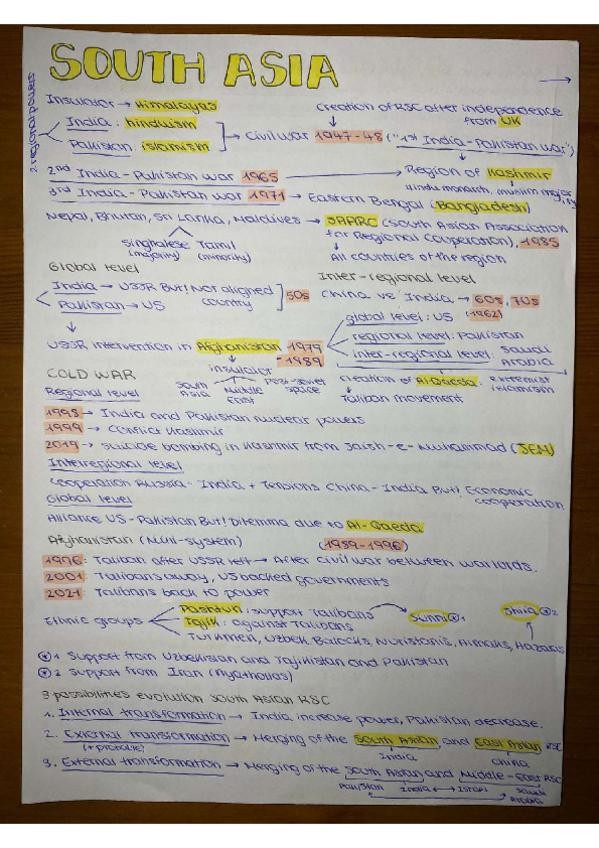 SOUTH ASIA
2 regional powers
Insulator → Himalayas
Creation of RSC after independence
from UK
India: hinduism
Pakistan: islamism
→ Civil war 1947-48 ("1st India-Pakistan war")
2nd India-Pakistan war 1965 → Region of Kashmir
Hindu monarch, muslim majority
3rd India-Pakistan war 1971 → Eastern Bengal (Bangladesh)
Nepal, Bhutan, Sri Lanka, Maldives → SAARC (South Asian Association
for Regional Cooperation), 1985
Singhalese Tamil
(majority) (minority)
All countries of the region
Global level
Inter-regional level
India → USSR But! Not aligned
country
Pakistan → US
50s
China vs India → 60s, 70s
(1962)
global level: US
regional level: Pakistan
inter-regional level: Saudi
Arabia
USSR intervention in Afghanistan 1979
-1989
insulator
South Asia
Middle East
Post-soviet space
creation of Al-Qaeda: extremist
islamism
Taliban movement
COLD WAR
Regional level
1998 → India and Pakistan nuclear powers
1999 → Conflict Kashmir
2019 → suicide bombing in Kashmir from Jaish-e-Muhammad (JEM)
Interregional level
Cooperation Russia-India + Tensions China-India But! Economic
cooperation
Global level
Alliance US-Pakistan But! Dilemma due to Al-Qaeda
Afghanistan (Mini-system) (1989-1996)
1996: Taliban after USSR left → After civil war between warlords.
2001: Talibans away, US backed governments
2021: Talibans back to power
Ethnic groups
Pashtun: support Talibans
Tajik: against Talibans
Turkmen, Uzbek, Balochs, Nuristanis, Aimaks, Hazaras
Sunni *1
Shiia *2
*1 Support from Uzbekistan and Tajikistan and Pakistan
*2 Support from Iran (Ayatholas)
3 possibilities evolution South Asian RSC
1. Internal transformation → India increase power, Pakistan decrease.
2. External transformation → Merging of the South Asian and East Asian RSC
(+ probable)
India
China
3. External transformation → Merging of the South Asian and Middle-East RSC
Pakistan India ↔ Israel Saudi
Arabia